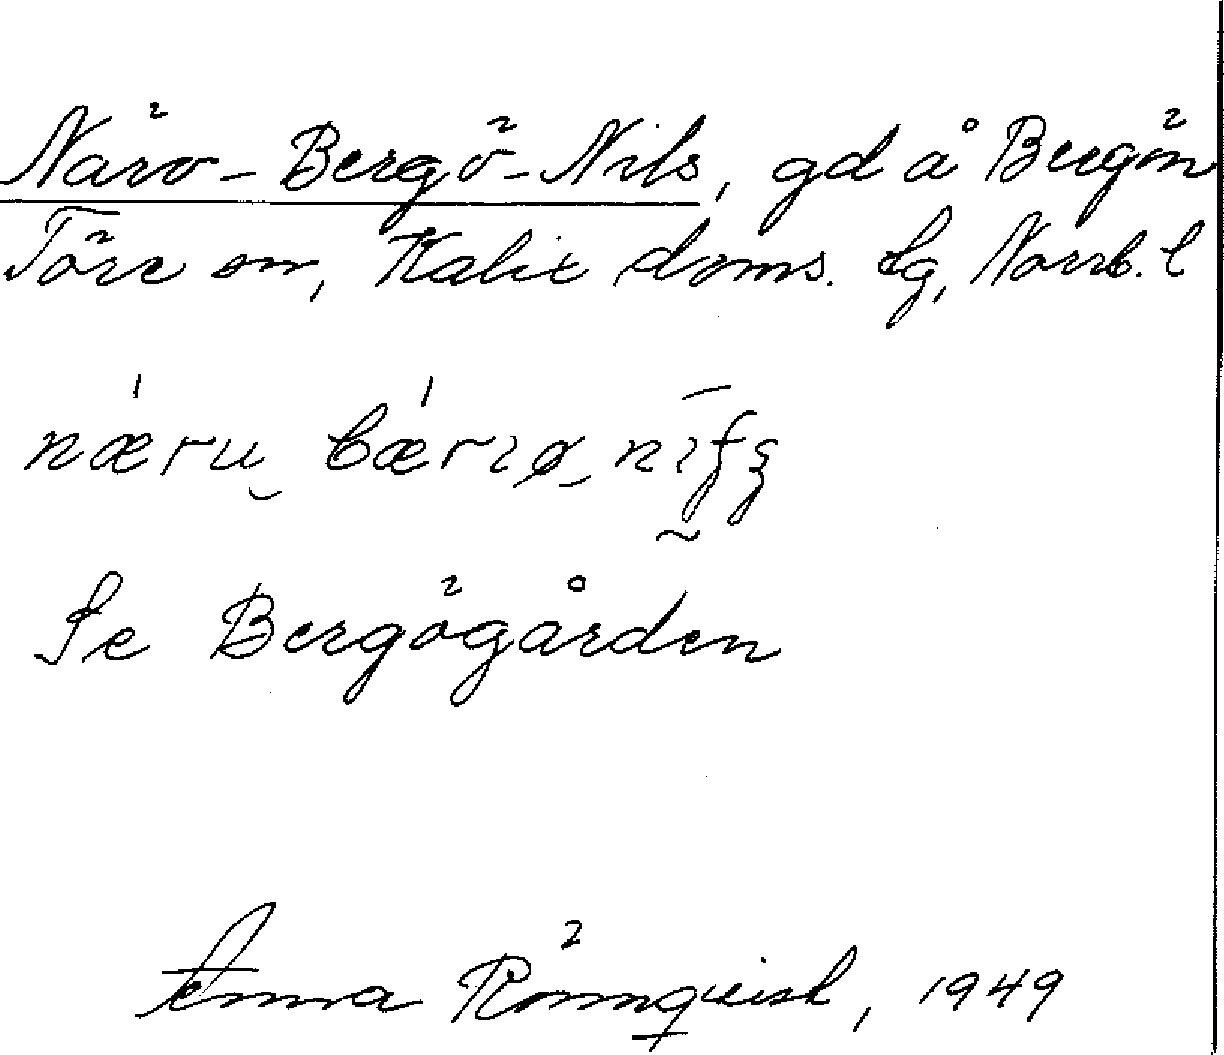 Näro-Bergö-Nils, gd å Bergön
Töre sn, Kalix doms. lg, Norrb. l
næru bærıø nıſʂ
Se Bergögården
Anna Rönnqvist, 1949